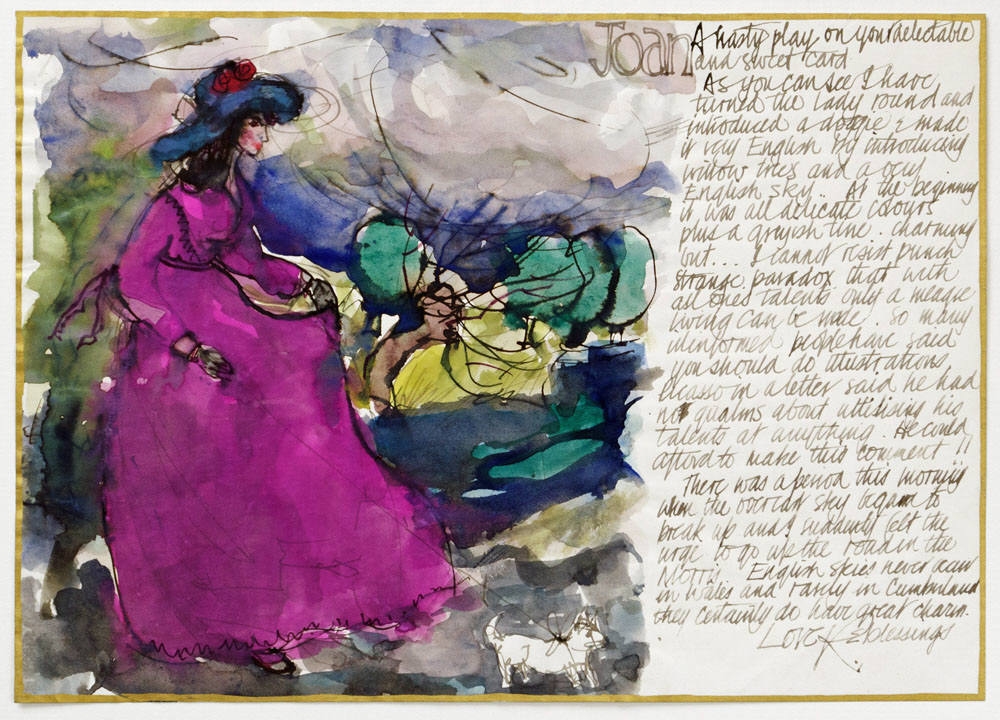 Joan
A hasty play on your delectable
and sweet card
As you can see I have
turned the lady round and
introduced a doggie & made
it very English by introducing
willow trees and a very
English sky. At the beginning
it was all delicate colours
plus a greyish line. charming
but.... I cannot resist punch
strange paradox that with
all ones talents only a meagre
living can be made. so many
uninformed people have said
you should do illustrations,
Picasso in a letter said he had
no qualms about utilising his
talents at anything. He could
afford to make this comment!!
There was a period this morning
when the overcast sky began to
break up and I suddenly felt the
urge to go up the road in the
Morris. English skies never occur
in Wales and rarely in Cumberland
they certainly do have great charm.
Love & blessings